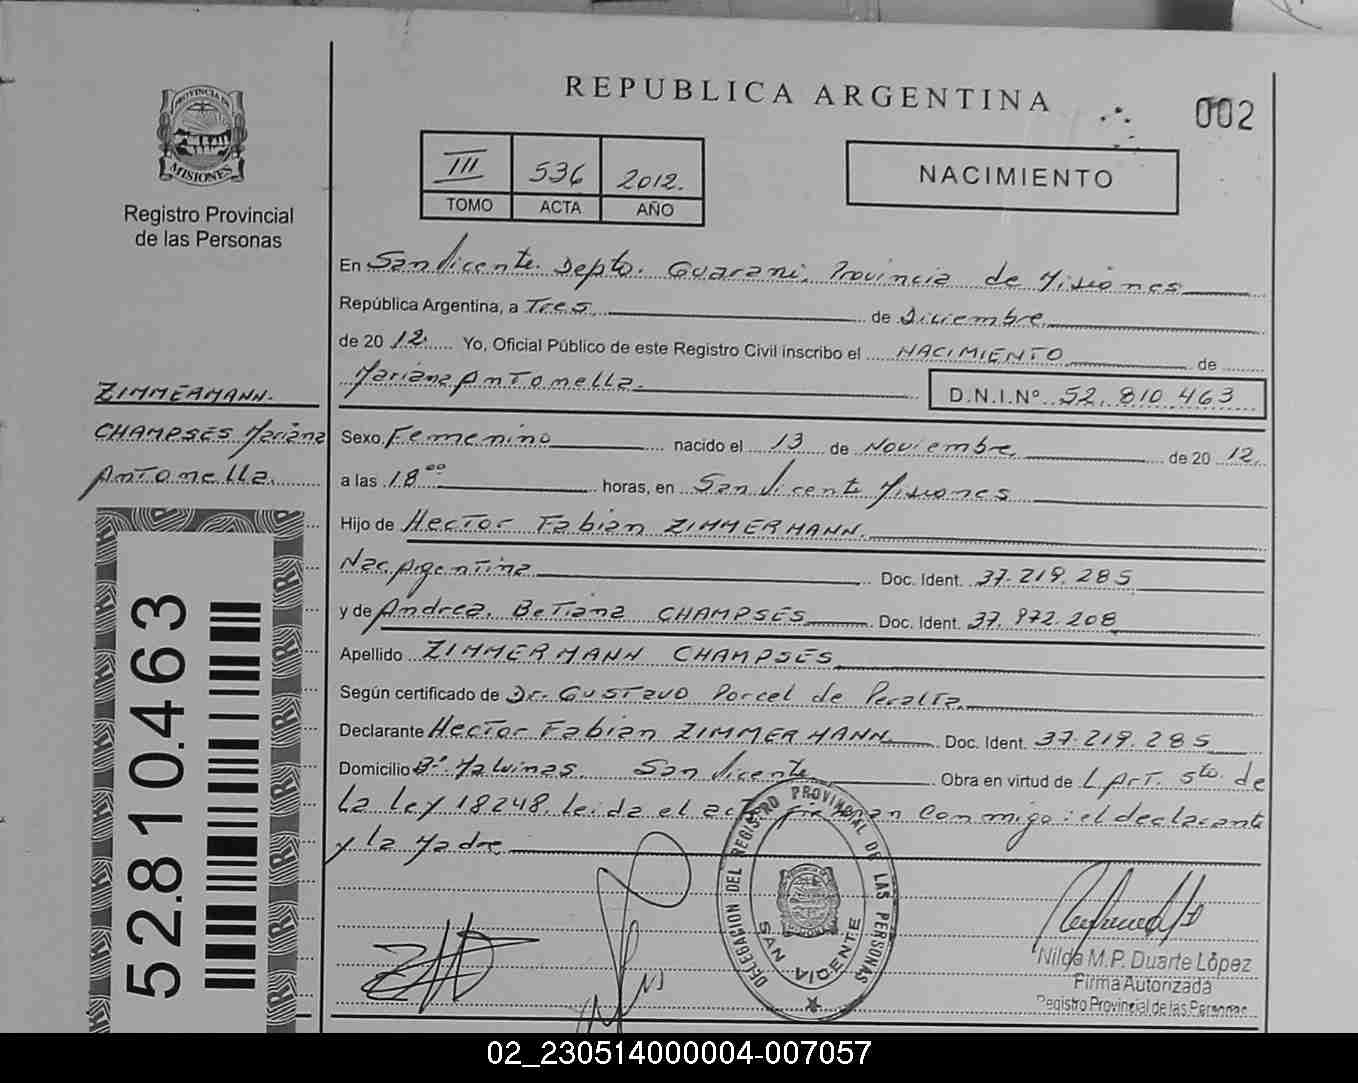 REPUBLICA ARGENTINA
002
PROVINCIA DE
MISIONES
Registro Provincial
de las Personas
III 536 2012.
TOMO ACTA AÑO
NACIMIENTO
En San Vicente. Depto. Guarani, Provincia de Misiones
República Argentina, a Tres de Diciembre
de 20 12. Yo, Oficial Público de este Registro Civil inscribo el NACIMIENTO de
Mariana Antonella.
D.N.I.Nº 52.810.463
ZIMMERMANN.
CHAMPSES Mariana
Antonella.
Sexo Femenino nacido el 13 de Noviembre de 20 12.
a las 18 00 horas, en San Vicente Misiones
Hijo de Hector Fabian ZIMMERMANN.
Nac. Argentina Doc. Ident. 37.219.285
y de Andrea Betiana CHAMPSES Doc. Ident. 37.972.208
Apellido ZIMMERMANN CHAMPSES
Según certificado de Dr. GUSTAVO Porcel de Peralta.
Declarante Hector Fabian ZIMMERMANN Doc. Ident. 37.219.285
Domicilio Bº Malvinas. San Vicente Obra en virtud de L Art. 5to. de
la ley 18248, leida el acta firman conmigo: el declarante
y la Madre
52.810.463
DELEGACION DEL REGISTRO PROVINCIAL DE LAS PERSONAS
SAN VICENTE
Nilda M.P. Duarte López
Firma Autorizada
Registro Provincial de las Personas
02_230514000004-007057